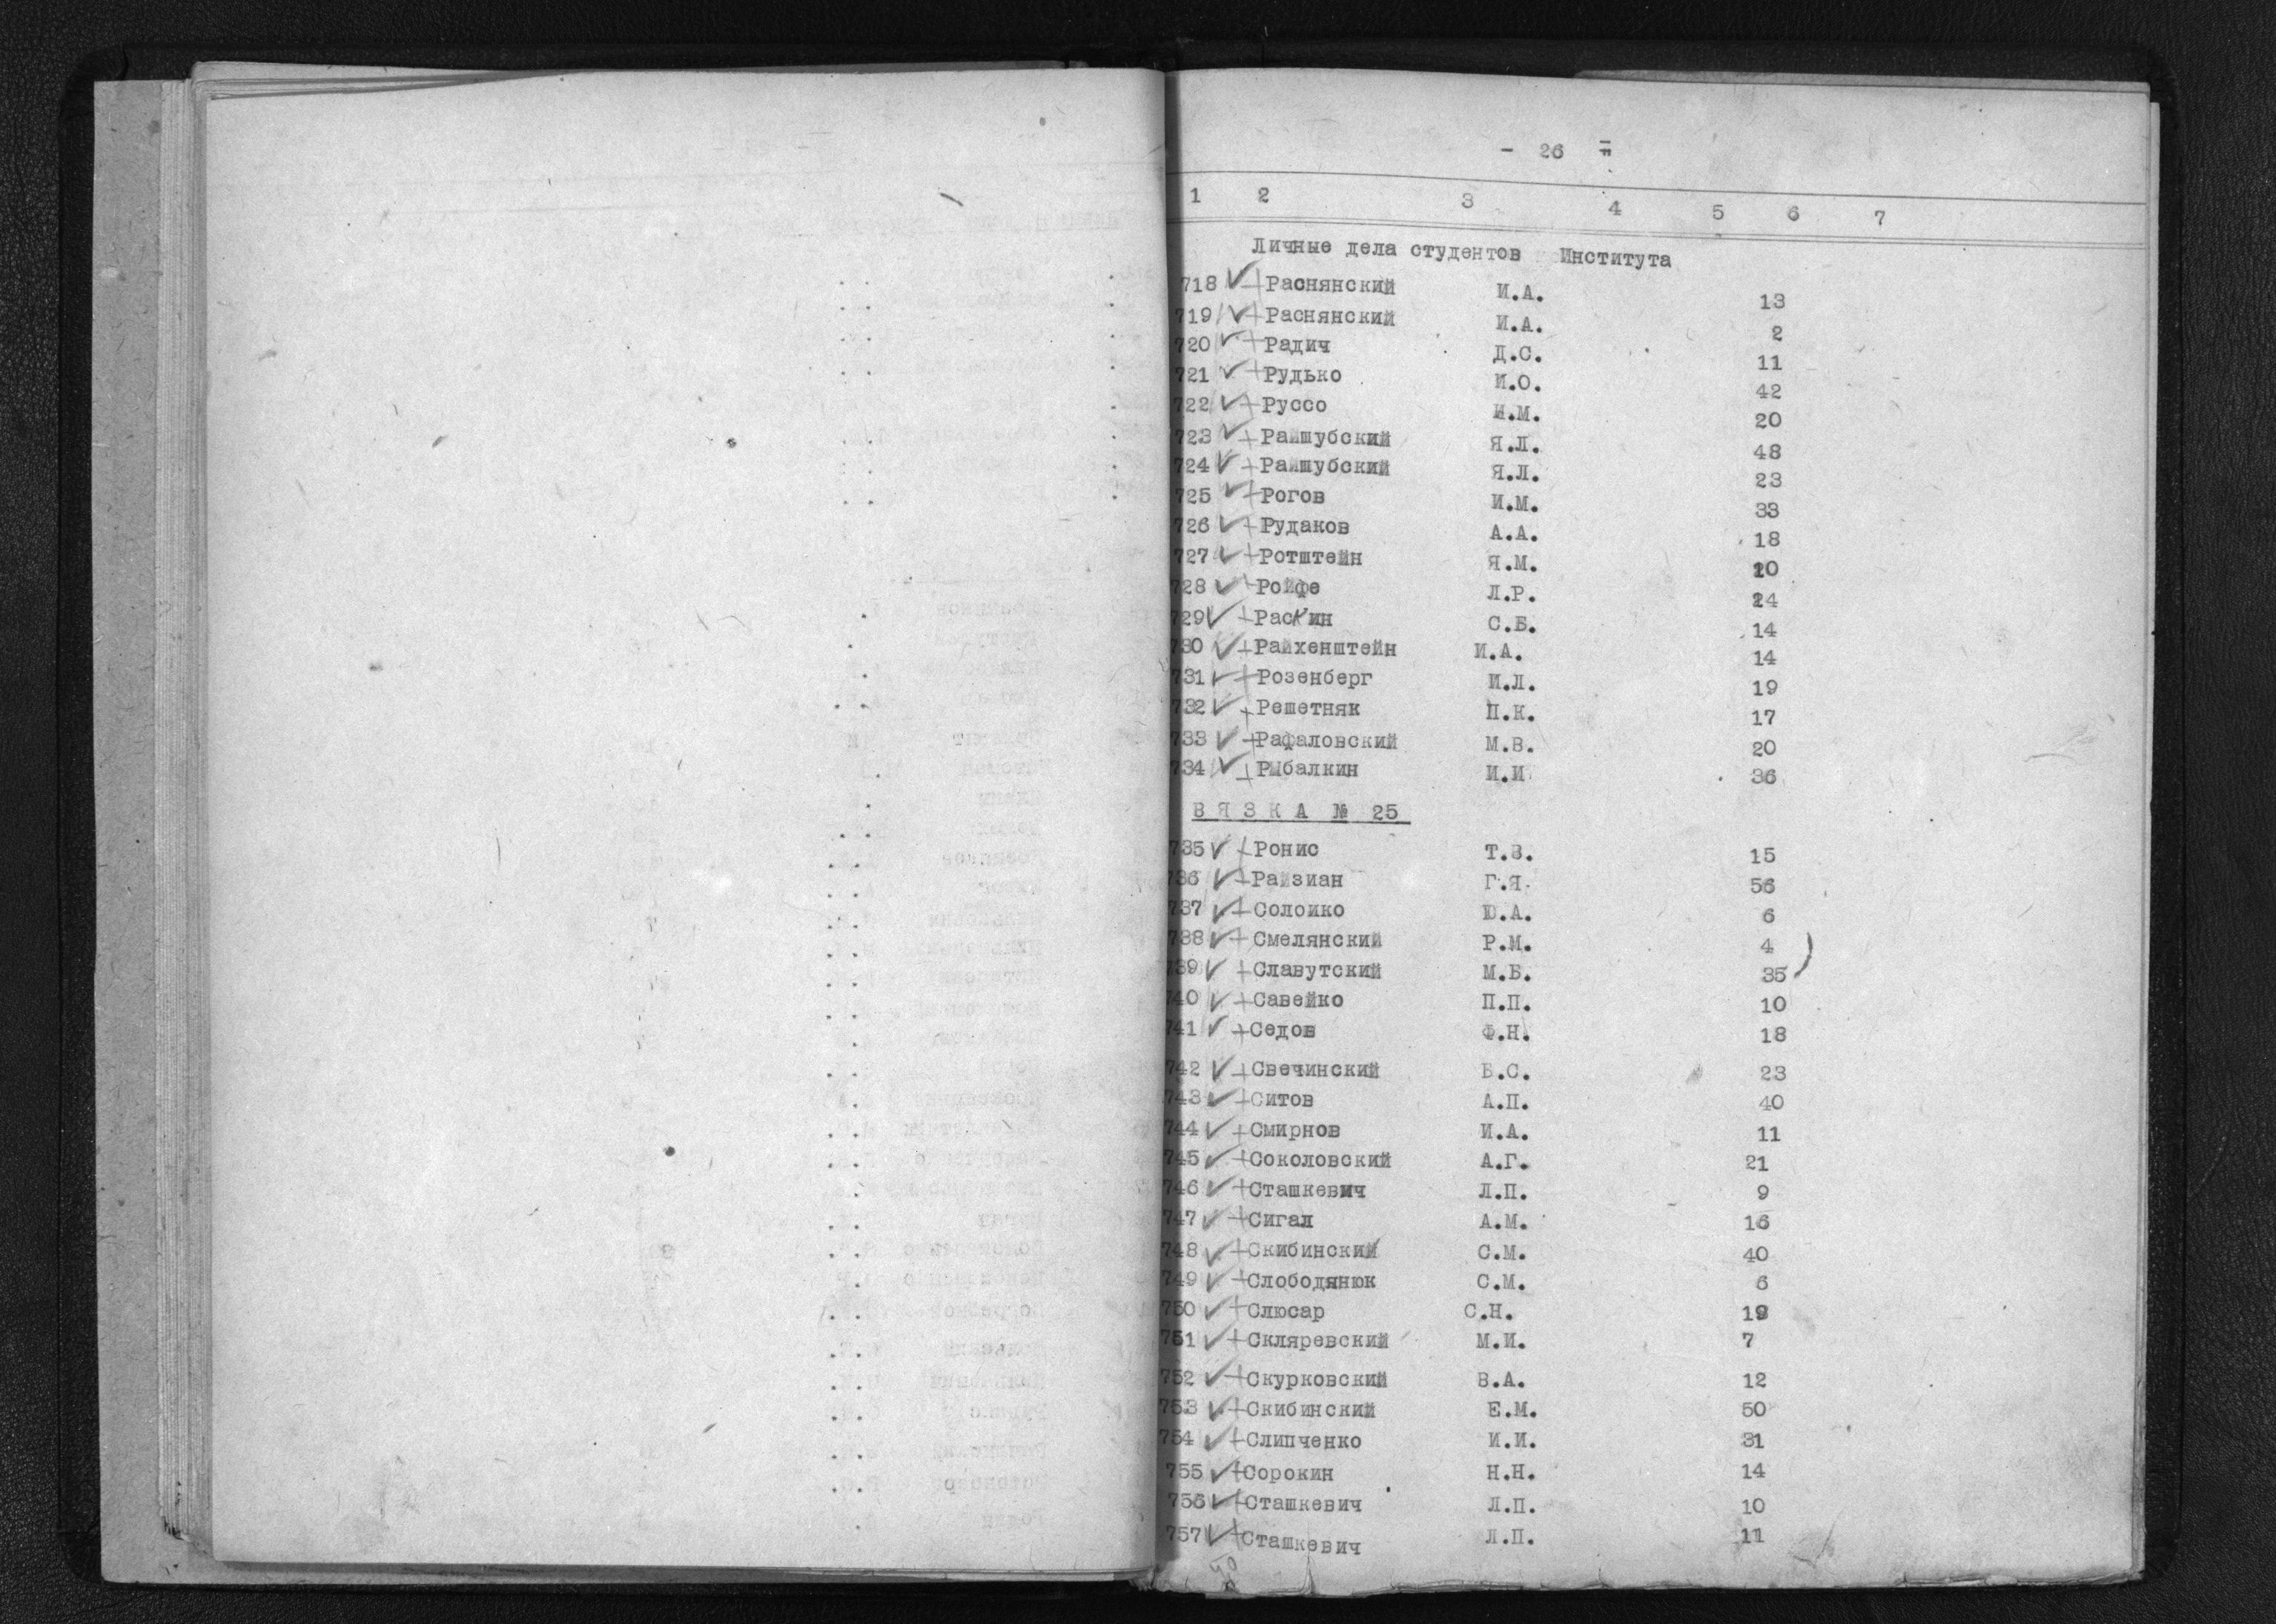 - 26 -
1 2 3 4 5 6 7
Личные дела студентов Института
718 Раснянский И.А. 13
719 Раснянский И.А. 2
720 Радич Д.С. 11
721 Рудько И.О. 42
722 Руссо И.М. 20
723 Райшубский Я.Л. 48
724 Райшубский Я.Л. 23
725 Рогов И.М. 33
726 Рудаков А.А. 18
727 Ротштейн Я.М.
728 Ройфе Л.Р.
729 Раскин С.Б. 14
730 Райхенштейн И.А. 14
731 Розенберг И.Л. 19
732 Решетняк П.К. 17
733 Рафаловский М.В. 20
734 Рыбалкин И.И 36
ВЯЗКА № 25
735 Ронис Т.В. 15
736 Райзиан Г.Я. 56
737 Солоико Ю.А. 6
738 Смелянский Р.М. 4
739 Славутский М.Б. 35
740 Савейко П.П. 10
741 Седов Ф.Н. 18
742 Свечинский В.С. 23
743 Ситов А.П. 40
744 Смирнов И.А. 11
745 Соколовский А.Г. 21
746 Сташкевич Л.П. 9
747 Сигал А.М. 16
748 Скибинский С.М. 40
749 Слободянюк С.М. 6
750 Слюсар С.Н.
751 Скляревский М.И. 7
752 Скурковский В.А. 12
753 Скибинский Е.М. 50
754 Слипченко И.И. 31
755 Сорокин Н.Н. 14
756 Сташкевич Л.П. 10
757 Сташкевич Л.П. 11